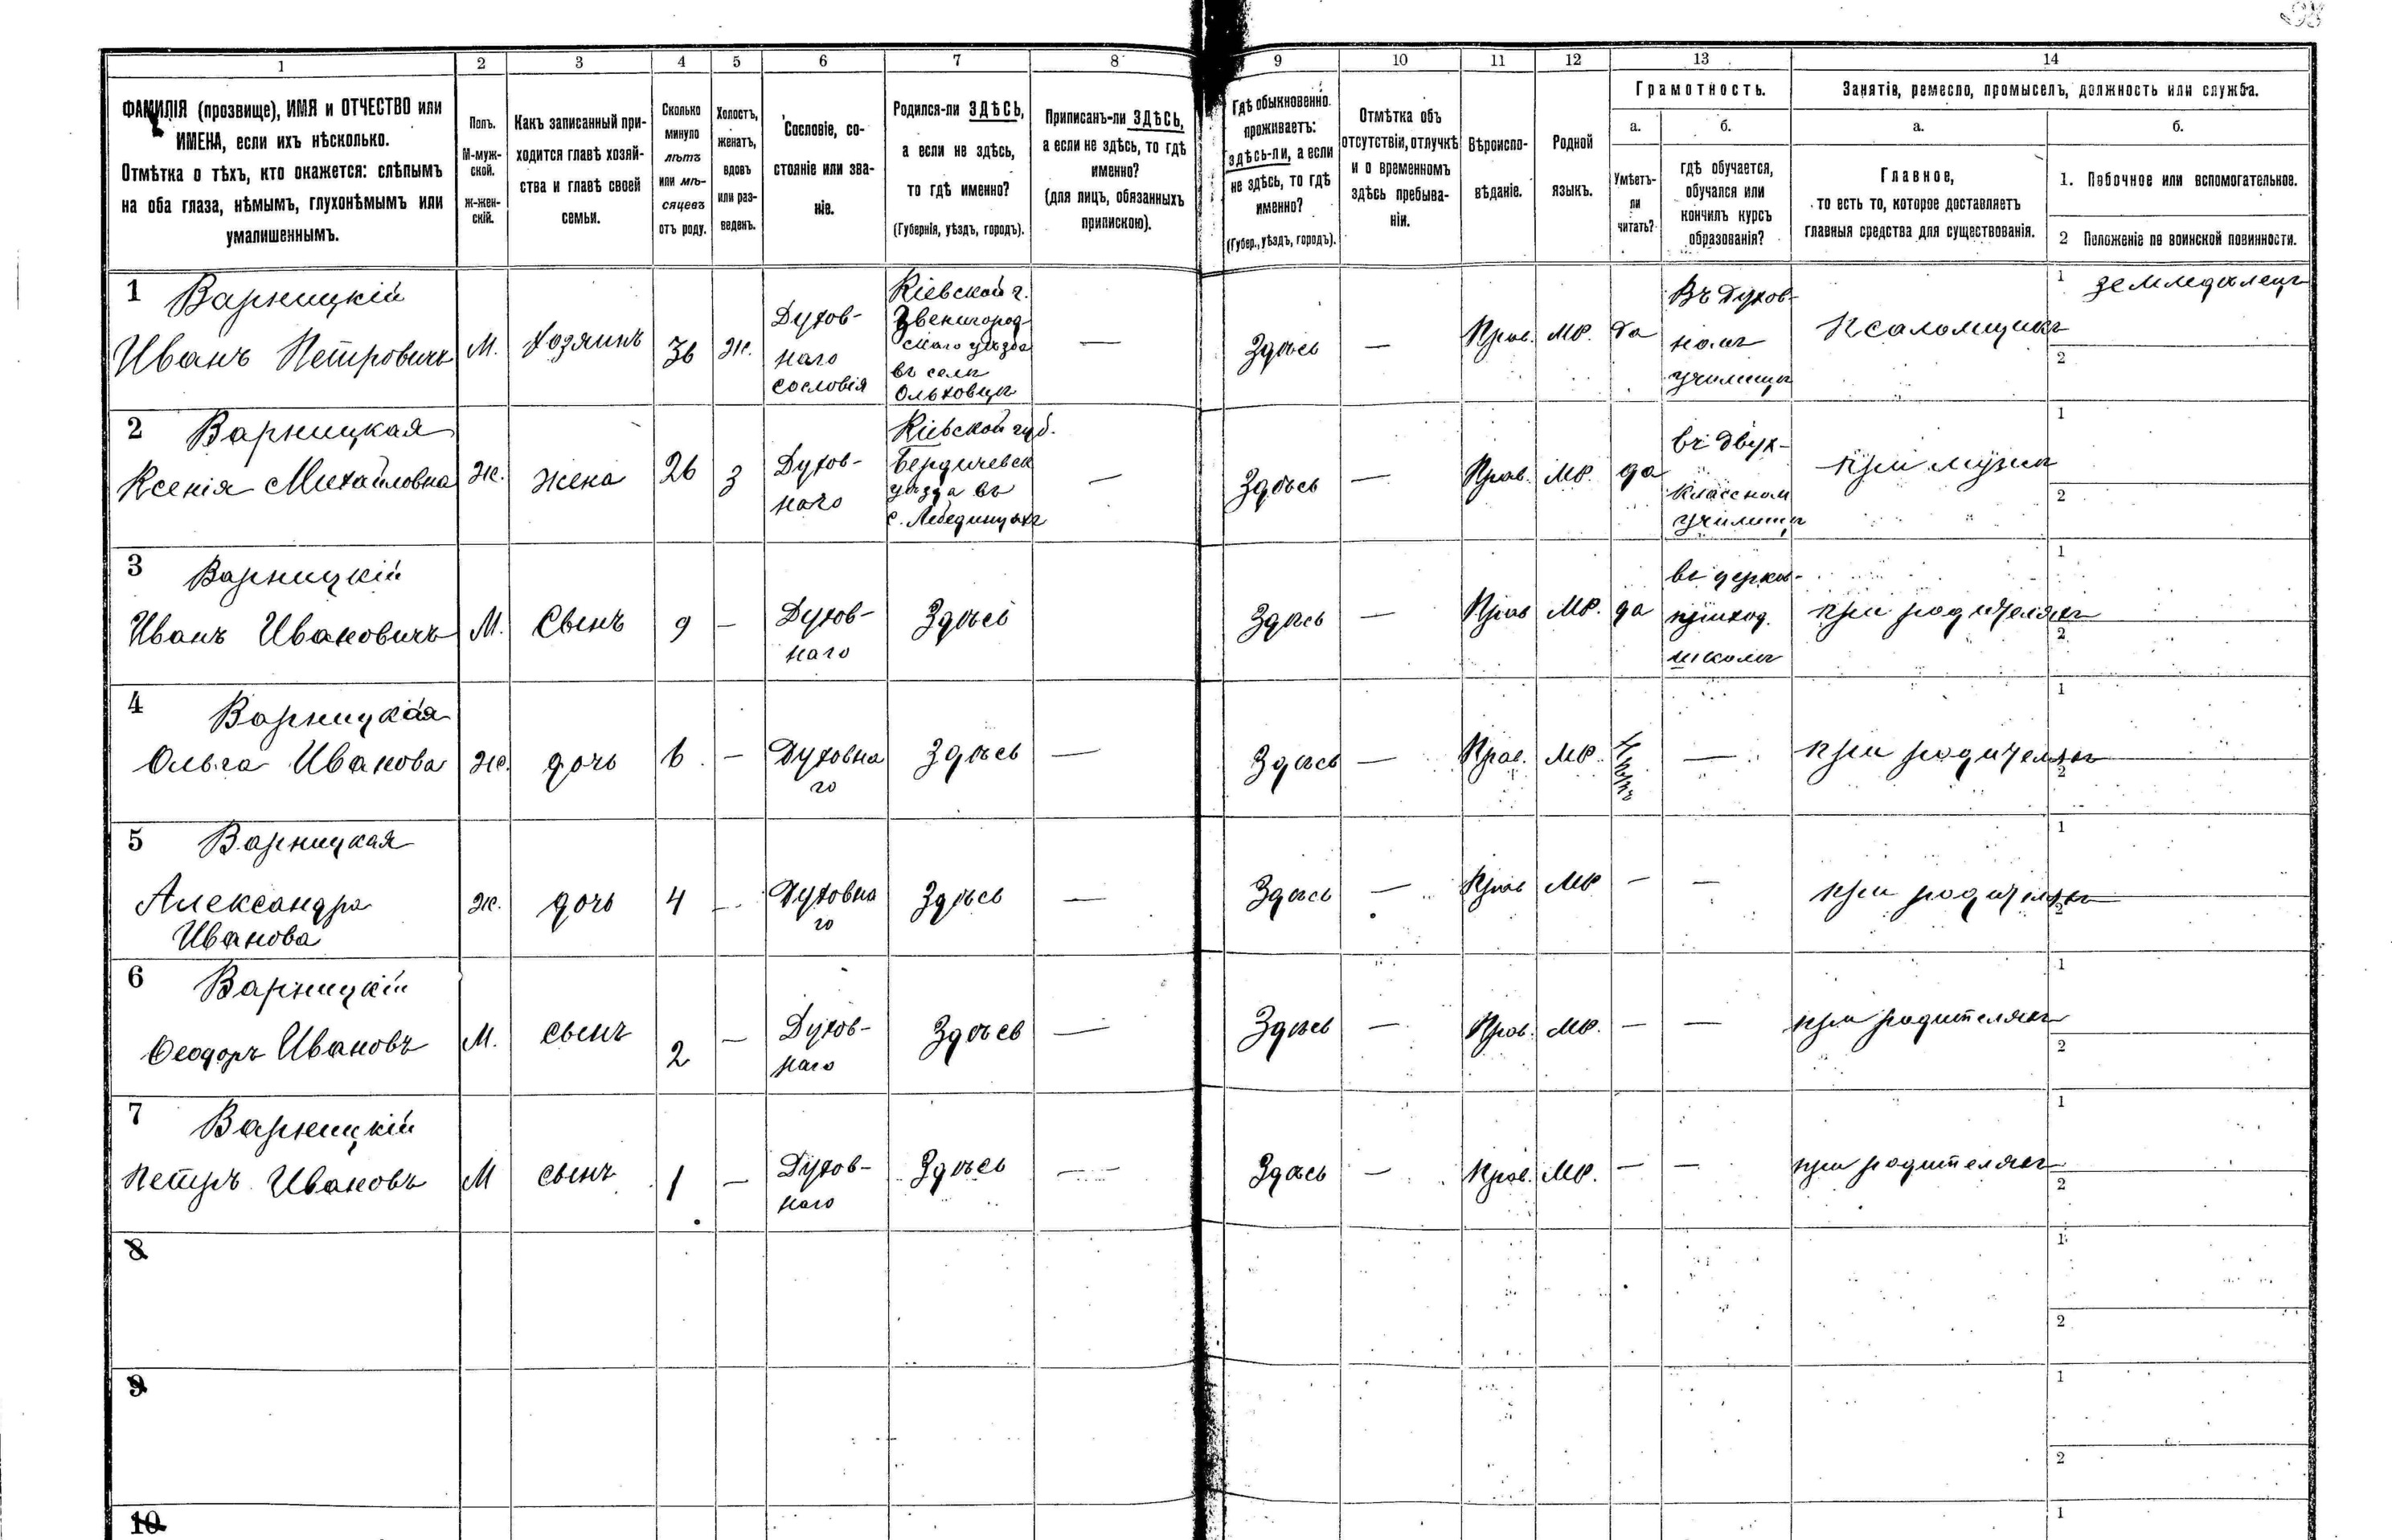 1 2 3 4 5 6 7 8 9 10 11 12 13 14
ФАМИЛІЯ (прозвище), ИМЯ и ОТЧЕСТВО или
ИМЕНА, если ихъ нѣсколько.
Отмѣтка о тѣхъ, кто окажется: слѣпымъ
на оба глаза, нѣмымъ, глухонѣмымъ или
умалишеннымъ.
Полъ.
М-муж-
ской.
Ж-жен-
скій.
Какъ записанный при-
ходится главѣ хозяй-
ства и главѣ своей
семьи.
Сколько
минуло
лѣтъ
или мѣ-
сяцевъ
отъ роду.
Холостъ,
женатъ,
вдовъ
или раз-
веденъ.
Сословіе, со-
стояніе или зва-
ніе.
Родился-ли ЗДѢСЬ,
а если не здѣсь,
то гдѣ именно?
(Губернія, уѣздъ, городъ).
Приписанъ-ли ЗДѢСЬ,
а если не здѣсь, то гдѣ
именно?
(для лицъ, обязанныхъ
припискою).
Гдѣ обыкновенно
проживаетъ:
здѣсь-ли, а если
не здѣсь, то гдѣ
именно?
(Губер., уѣздъ, городъ).
Отмѣтка объ
отсутствіи, отлучкѣ
и о временномъ
здѣсь пребыва-
ніи.
Вѣроиспо-
вѣданіе.
Родной
языкъ.
Грамотность.
а.
Умѣетъ-
ли
читать?
б.
гдѣ обучается,
обучался или
кончилъ курсъ
образованія?
Занятіе, ремесло, промыселъ, должность или служба.
а.
Главное,
то есть то, которое доставляетъ
главныя средства для существованія.
б.
1. Побочное или вспомогательное.
2 Положеніе по воинской повинности.
1 Варницкій
Иванъ Петровичъ
М.
Хозяинъ
36
Ж.
Духов-
наго
сословія
Кіевской г.
Звенигород-
скаго уѣзда
въ селѣ
Ольховцѣ
—
Здѣсь
—
Прав.
МР.
да
Въ духов-
номъ
училищѣ
Псаломщикъ
1 земледѣлецъ
2
2 Варницкая
Ксенія Михайловна
Ж.
жена
26
З
Духов-
наго
Кіевской губ.
Бердичевск
уѣзда въ
с. Лебединцахъ
—
Здѣсь
—
Прав.
МР.
да
въ двух-
классном
училищѣ
при мужѣ
1
2
3 Варницкій
Иванъ Ивановичъ
М.
Сынъ
9
—
Духов-
наго
Здѣсь
Здѣсь
—
Прав
МР.
да
въ церков-
приход.
школѣ
при родителяхъ
1
2
4 Варницкая
Ольга Иванова
Ж.
дочь
6
—
Духовна
го
Здѣсь
—
Здѣсь
—
Прав.
МР.
Нѣтъ
—
при родителяхъ
1
2
5 Варницкая
Александра
Иванова
Ж.
дочь
4
—
Духовна
го
Здѣсь
—
Здѣсь
—
Прав
МР
—
—
при родителяхъ
1
2
6 Варницкій
Ѳеодоръ Ивановъ
М.
сынъ
2
—
Духов-
наго
Здѣсь
—
Здѣсь
—
Прав.
МР.
—
—
при родителяхъ
1
2
7 Варницкій
Петръ Ивановъ
М
сынъ
1
—
Духов-
наго
Здѣсь
—
Здѣсь
—
Прав.
МР.
—
—
при родителяхъ
1
2
8
1
2
9
1
2
10
1